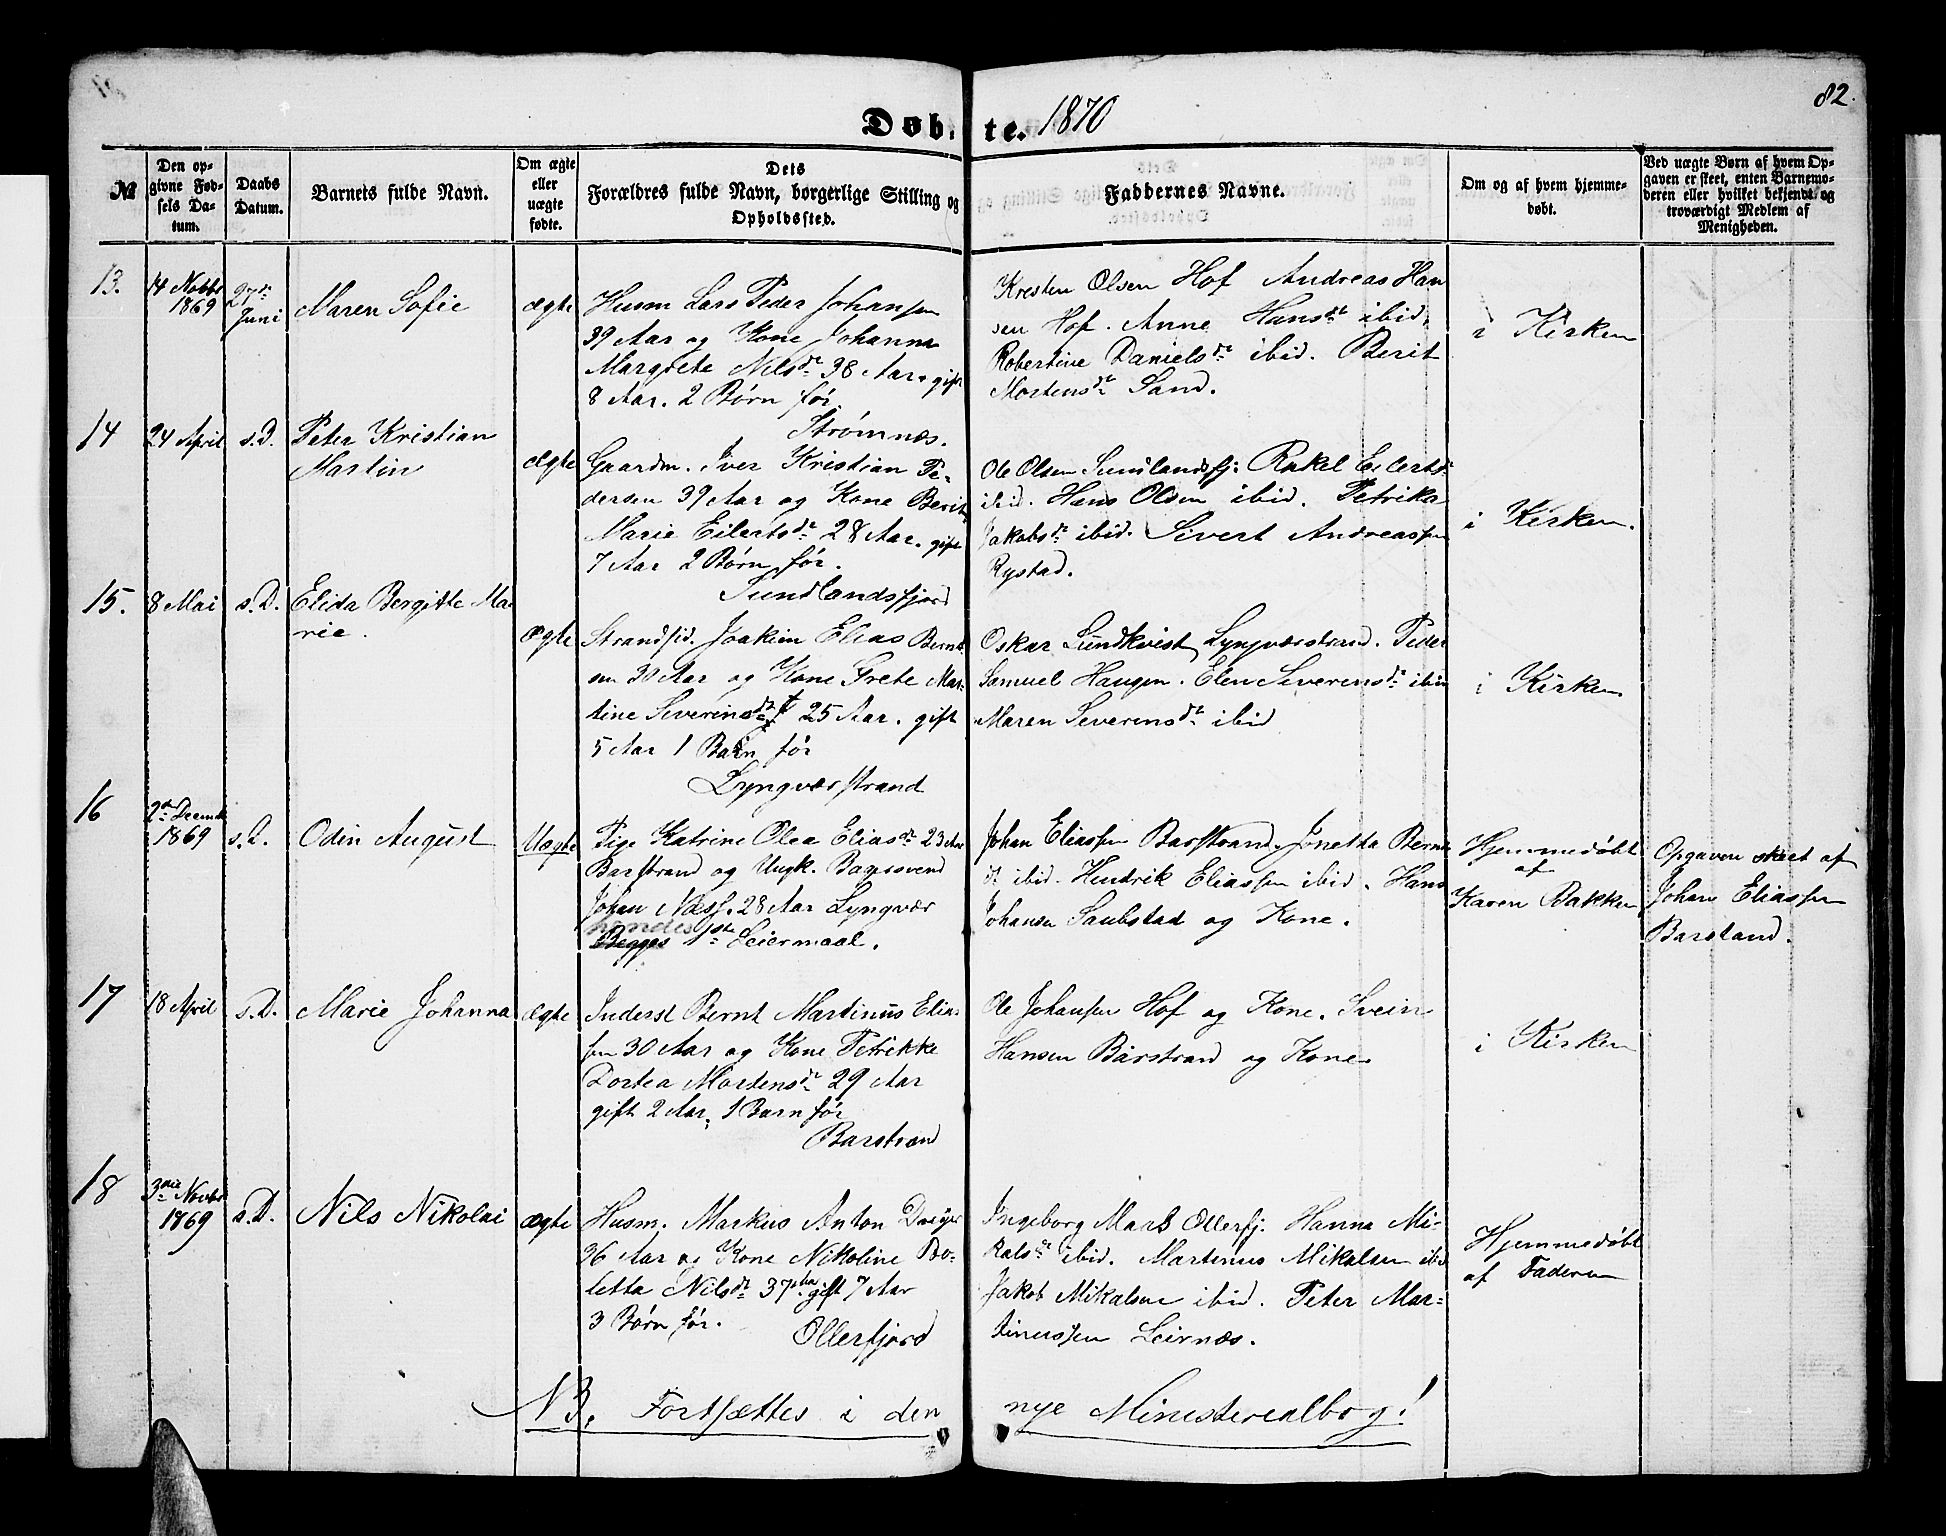 82.
Døbte. 1870
№
Den opgivne Fødsels Datum.
Daabs Datum.
Barnets fulde Navn.
Om ægte eller uægte fødte.
Dets Forældres fulde Navn, borgerlige Stilling og Opholdssted.
Faddernes Navne.
Om og af hvem hjemmedøbt.
Ved uægte Børn af hvem Opgaven er skeet, enten Barnemoderen eller hvilket bekjendt og troværdigt Medlem af Menigheden.
13.
14 Novbr
1869
27de
Juni
Maren Sofie
ægte
Husm Lars Peder Johansen
39 Aar og Kone Johanna
Margrete Nilsdr 38 Aar. gift
8 Aar. 2 Børn før.
Strømnæs.
Kresten Olsen Hof Andreas Han
sen Hof. Anne Hansdr ibid.
Robertine Danielsdr ibid. Berit
Mortensdr Sand.
i Kirken
14
24 April
s.D.
Peter Kristian
Martin
ægte
Gaardm. Iver Kristian Pe-
dersen 39 Aar og Kone Berit
Marie Eilertsdr 28 Aar. gift
7 Aar 2 Børn før.
Sundlandsfjord
Ole Olsen Sundlandsfj. Rakel Eilertsdr
ibid. Hans Olsen ibid. Petrika
Jakobsdr ibid. Sivert Andreassen
Rystad.
i Kirken.
15.
8 Mai
s.D.
Elida Bergitte Ma
rie.
ægte
Strandsid. Joakim Elias Bernt
sen 30 Aar og Kone Grete Mar-
tine Severinsdr 25 Aar. gift
5 Aar 1 Barn før
Lyngværstrand
Oskar Sundkvist Lyngværstrand. Peder
Samuel Haugen. Elen Severinsdr ibid
Maren Severinsdr ibid
i Kirken
16
2den Decemb
1869
s.D.
Odin August
Uægte
Pige Katrine Olea Eliasdr 23 Aar
Barstrand og Ungk. Bagersvend
Johan Næss. 28 Aar Lyngvær
hendes
Begges 1ste Leiermaal.
Johan Eliassen Barstrand. Jonetta Bernt
dr ibid. Hendrik Eliassen ibid. Hans
Johansen Saubstad og Kone.
Hjemmedøbt
af
Karen Bakken
Opgaven skeet af
Johan Eliassen
Barstand.
17
18 April
s.D.
Marie Johanna
ægte
Inderst Bernt Martinus Elias
sen 30 Aar og Kone Petrikke
Dortea Mortensdr 29 Aar
gift 2 Aar, 1 Barn før
Barstrand
Ole Johansen Hof og Kone. Svein
Hansen Barstrand og Kone
i Kirken
18
3die Novbr
1869
s.D.
Nils Nikolai
ægte
Husm. Markus Anton Dreyer
36 Aar og Kone Nikoline Bo-
letta Nilsdr 37 gift 7 Aar
3 Børn før.
Ollerfjord
Ingeborg Mars Ollerfj. Hanna Mi-
kalsdr ibid. Martinus Mikalsen ibid
Jakob Mikalsen ibid. Peter Mar-
tinussen Leirnæs.
Hjemmedøbt
af Faderen
NB. Fortsættes i den nye Ministerialbog!